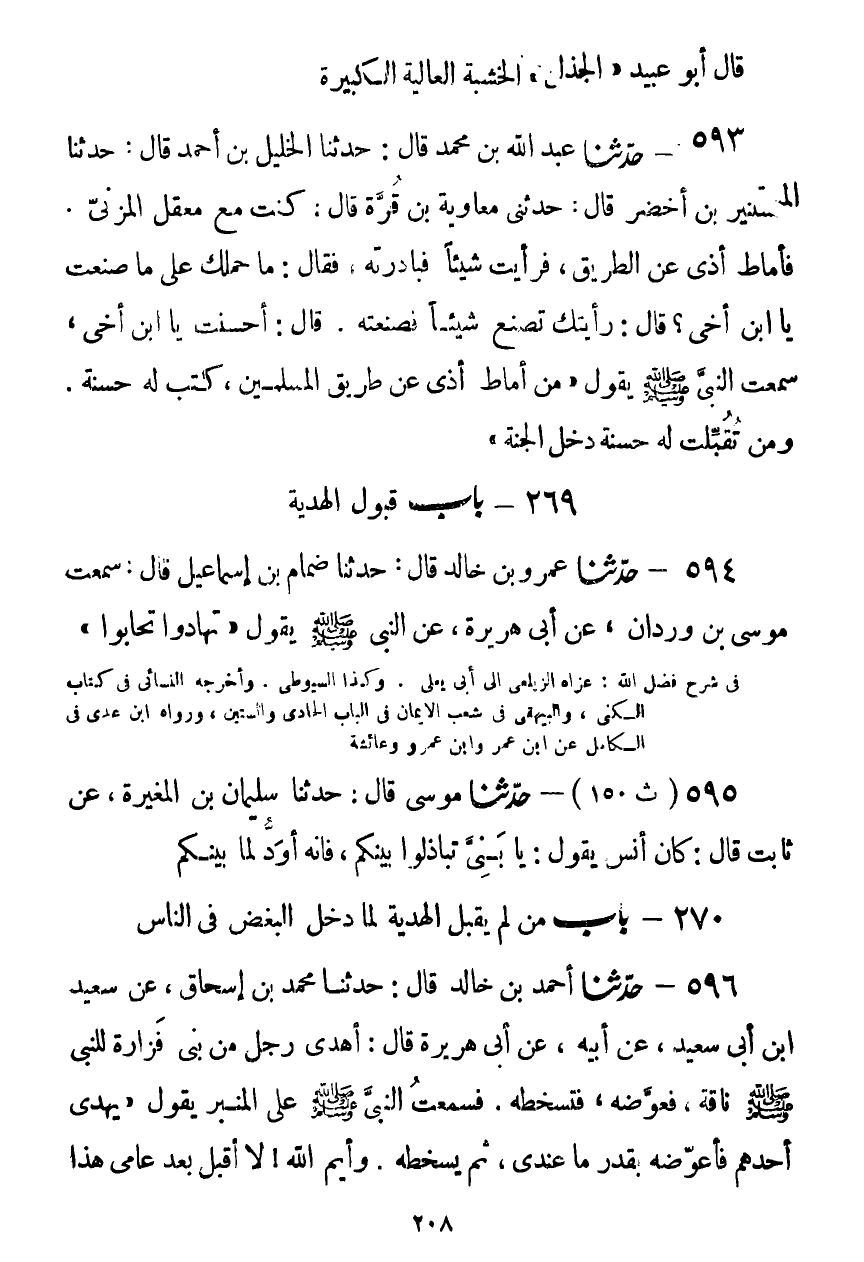 قال أبو عبيد «الجذل» الخشبة العالية الكبيرة
٥٩٣ – حدّثنا عبد الله بن محمد قال : حدثنا الخليل بن أحمد قال : حدثنا
المستنير بن أخضر قال : حدثنى معاوية بن قُرَّة قال : كنت مع معقل المزنىّ .
فأماط أذى عن الطريق ، فرأيت شيئاً فبادرته ، فقال : ما حملك على ما صنعت
يا ابن أخى ؟ قال : رأيتك تصنع شيئاً فصنعته . قال : أحسنت يا ابن أخى ،
سمعت النبىَّ ﷺ يقول « من أماط أذى عن طريق المسلمين ، كتب له حسنة .
ومن تُقُبِّلت له حسنة دخل الجنة »
٢٦٩ – باب قبول الهدية
٥٩٤ – حدّثنا عمرو بن خالد قال : حدثنا ضمام بن إسماعيل قال : سمعت
موسى بن وردان ، عن أبى هريرة ، عن النبى ﷺ يقول « تهادوا تحابوا »
فى شرح فضل الله : عزاه الزيلعى الى أبى يعلى . وكذا السيوطى . وأخرجه النسائى فى كتاب
الكنى ، والبيهقى فى شعب الايمان فى الباب الحادى والستين ، ورواه ابن عدى فى
الكامل عن ابن عمر وابن عمرو وعائشة
٥٩٥ ( ث ١٥٠ ) – حدّثنا موسى قال : حدثنا سليمان بن المغيرة ، عن
ثابت قال : كان أنس يقول : يا بَنِىَّ تباذلوا بينكم ، فانه أودُّ لما بينكم
٢٧٠ – باب من لم يقبل الهدية لما دخل البغض فى الناس
٥٩٦ – حدّثنا أحمد بن خالد قال : حدثنا محمد بن إسحاق ، عن سعيد
ابن أبى سعيد ، عن أبيه ، عن أبى هريرة قال : أهدى رجل من بنى فَزارة للنبى
ﷺ ناقة ، فعوَّضه ، فتسخطه . فسمعتُ النبىَّ ﷺ على المنبر يقول « يهدى
أحدهم فأعوّضه بقدر ما عندى ، ثم يسخطه . وأيم الله ! لا أقبل بعد عامى هذا
٢٠٨